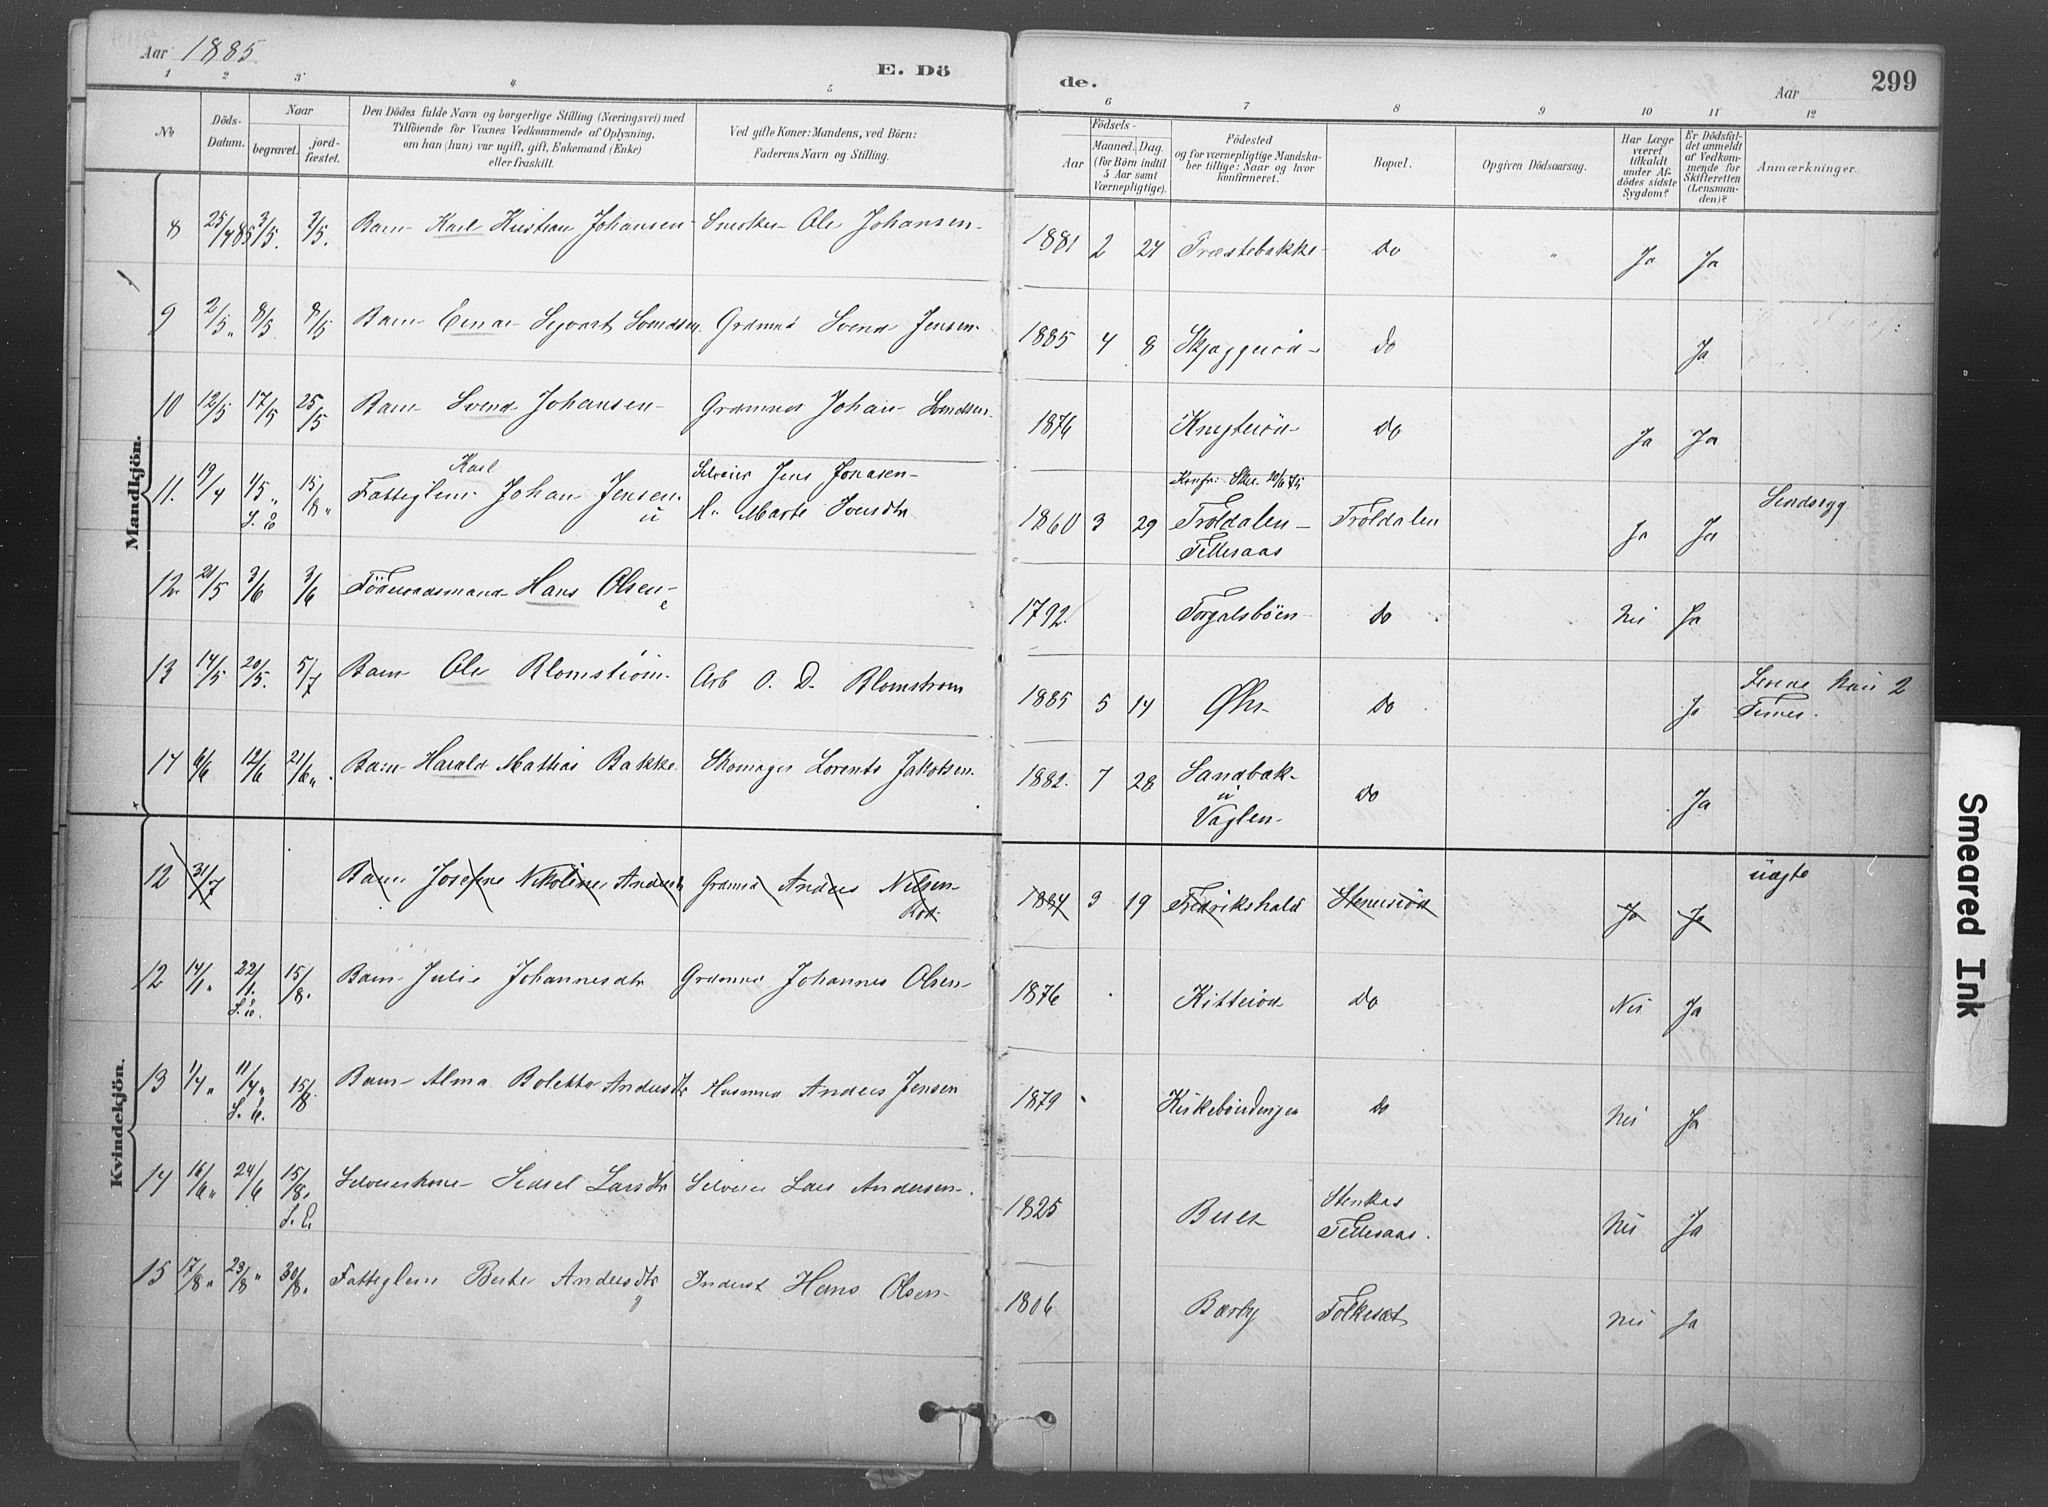 Aar 1885.
E. Döde.
Aar
299
1 2 3 4 5 6 7 8 9 10 11 12
No
Döds-Datum.
Naar
begravet.
jordfæstet.
Den Dödes fulde Navn og borgerlige Stilling (Næringsvei) med
Tilföiende for Voxnes Vedkommende af Oplysning,
om han (hun) var ugift, gift, Enkemand (Enke)
eller fraskilt.
Ved gifte Koner: Mandens, ved Börn:
Faderens Navn og Stilling.
Födsels-
Aar
Maaned.
Dag.
(for Börn indtil
5 Aar samt
Værnepligtige).
Födested
og for værnepligtige Mandska-
ber tillige: Naar og hvor
konfirmeret.
Bopæl.
Opgiven Dödsaarsag.
Har Læge
været
tilkaldt
under Af-
dödes sidste
Sygdom?
Er Dödsfal-
det anmeldt
af Vedkom-
mende for
Skifteretten
(Lensman-
den)?
Anmærkninger.
Mandkjön.
8 25/4 85 3/5. 3/5. Barn Karl Kristian Johansen Snedker Ole Johansen 1881 2 24 Præstebakke Do " Ja Ja
9 2/5 " 8/5 8/5 Barn Einar Sigvart Svendsen Grdmnd Svend Jensen 1885 4 8 Skjaggeröd Do Ja
10 12/5 17/5 25/5 Barn Svend Johansen Grdmnd Johan Svendsen 1876 Knigteröd Do Ja Ja
11. 19/4 1/5 " S. Ö 15/8 " Fatteglem Karl Johan Jensen u Selveier Jens Jonasen H. Marte Svendtr 1860 3 29 Konfr: Skee 20/6 75 Troldalen Tellesaas Troldalen Ja Ja Sindssyg
12. 21/5 3/6 3/6 Föderaadsmand Hans Olsen e 1792. Torgalsböen Do Nei Ja
13 14/5 20/5. 5/7 Barn Ole Blomström Arb O. D. Blomstrom 1885 5 14 Öhr Do Ja Levede kun 2 Timer.
14 6/6 12/6 21/6 " Barn Harald Mathias Bakke Skomager Lorents Jakobsen 1882. 7 28 Sandbæk u Vaglen Do Ja
Kvindekjön.
12 31/7 Barn Josefine Nikoline Andersdtr Grdmnd Anders Nilsen Röd 1884 3 19 Fredrikshald Steneröd Ja Ja uægte
12 14/1 " 22/1. S. Ö. 15/8. Barn Julie Johannesdtr Grdmnd Johannes Olsen 1876 Kitteröd Do Nei Ja
13 1/4 " 11/4 " S. E. 15/8 Barn Alma Bolette Andersdtr Husmnd Anders Jensen 1879 Kirkeböundengen Do Nei Ja
14 16/6 " 24/6 15/8. S. E. Selveierkone Sidsel Larsdtr Selveier Lars Andersen 1825 Buer Stenkas Tellesaas. Nei Ja
15 17/8 " 23/8 " 30/8. Fatteglem Berte Andersdtr g Inderst Hans Olsen 1806 Bærby Folkesæt Nei Ja
Smeared Ink